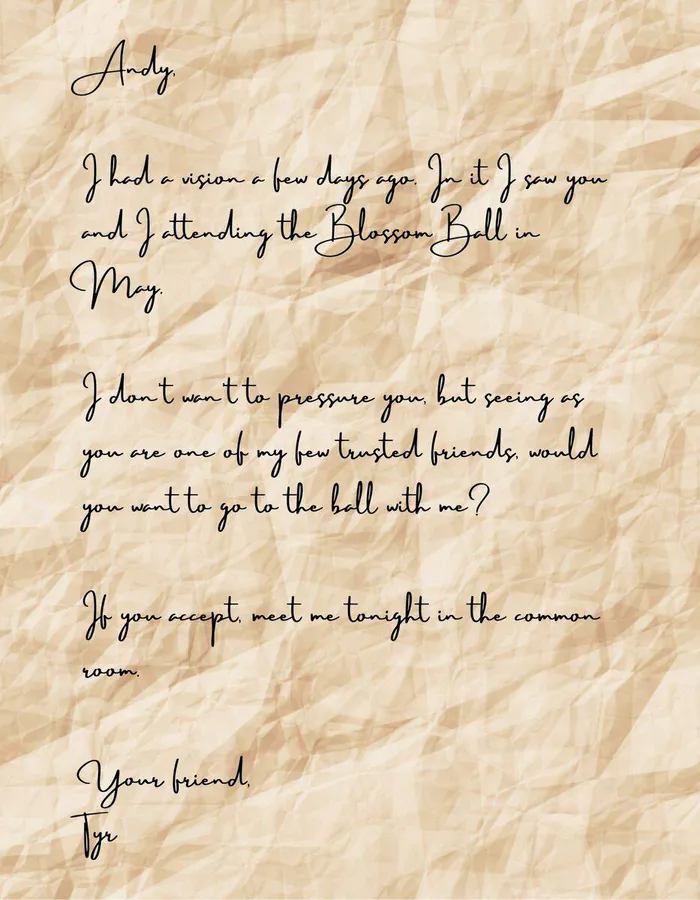 Andy,
I had a vision a few days ago. In it I saw you
and I attending the Blossom Ball in
May.
I don't want to pressure you, but seeing as
you are one of my few trusted friends, would
you want to go to the ball with me?
If you accept, meet me tonight in the common
room.
Your friend,
Tyr